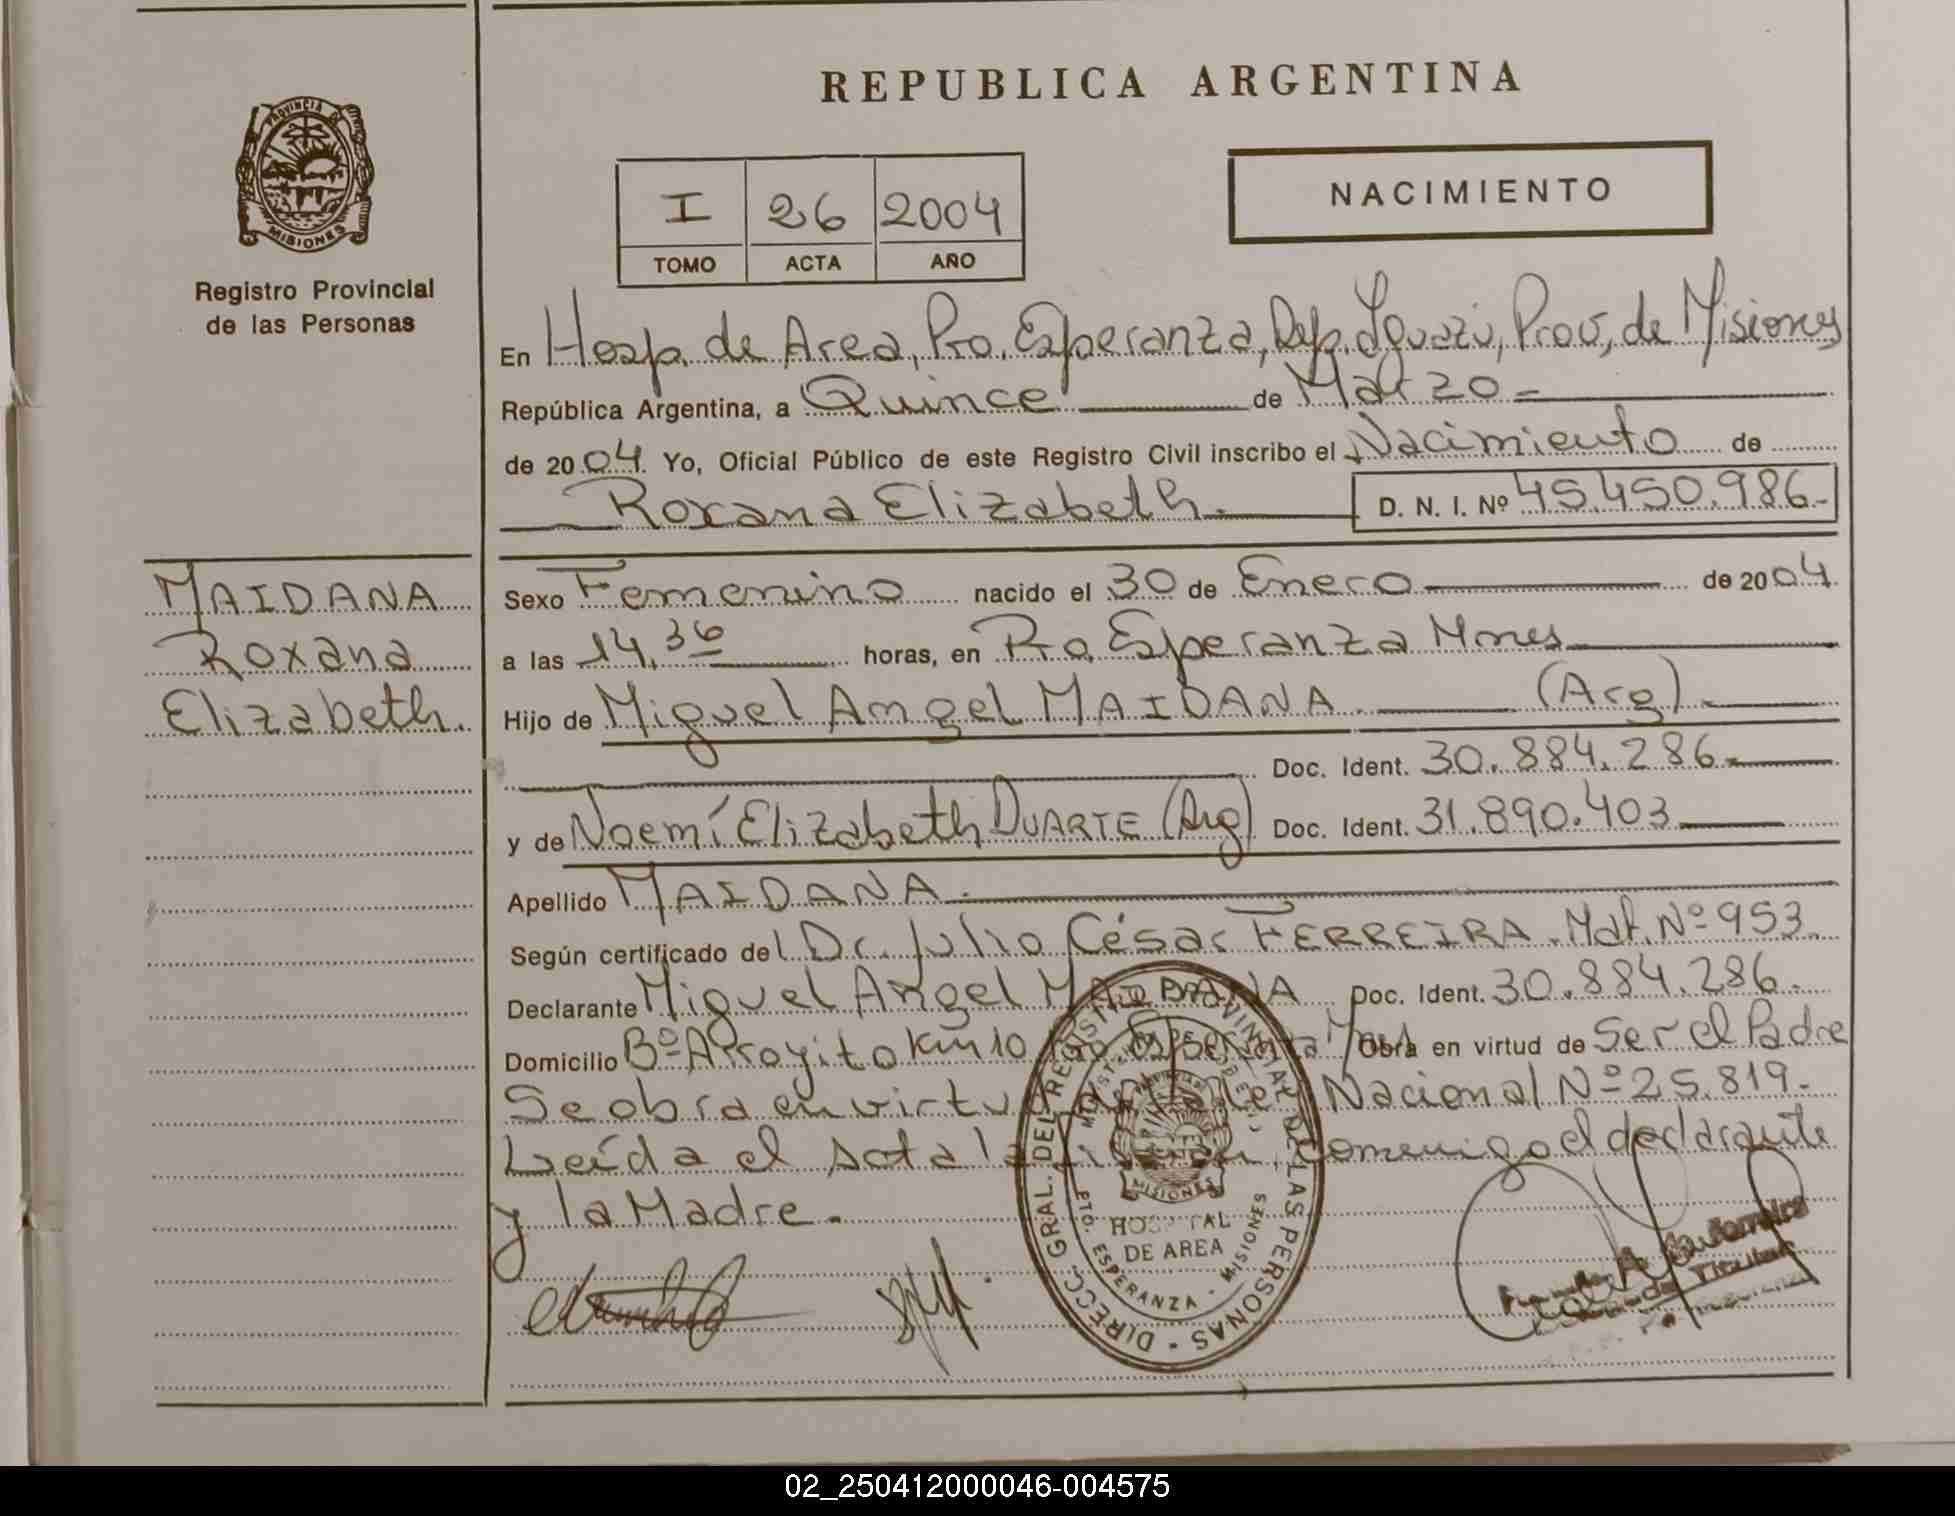 REPUBLICA ARGENTINA
PROVINCIA DE
MISIONES
Registro Provincial
de las Personas
I 26 2004
TOMO ACTA AÑO
NACIMIENTO
En Hosp. de Area, Pto. Esperanza, Dep. Iguazú, Prov, de Misiones
República Argentina, a Quince de Marzo
de 2004. Yo, Oficial Público de este Registro Civil inscribo el Nacimiento de
Roxana Elizabeth. D. N. I. Nº 45.450.986.-
MAIDANA
Roxana
Elizabeth.
Sexo Femenino nacido el 30 de Enero de 2004
a las 14,36 horas, en Pto. Esperanza Mnes
Hijo de Miguel Angel MAIDANA. (Arg).
Doc. Ident. 30.884.286.
y de Noemí Elizabeth DUARTE (Arg) Doc. Ident. 31.890.403
Apellido MAIDANA.
Según certificado del Dr. Julio César FERREIRA. Mat. Nº 953.
Declarante Miguel Angel MAIDANA Doc. Ident. 30.884.286.
Domicilio Bº Arroyito Km 10 Pto. Esperanza Obra en virtud de Ser el Padre
Se obra en virtud de la Ley Nacional Nº 25.819.-
Leída el acta la firman comenigo el declarante
y la Madre.
DIRECC. GRAL. DEL REGISTRO PROVINCIAL DE LAS PERSONAS
MISIONES
HOSPITAL
DE AREA
PTO. ESPERANZA - MISIONES
Titular
02_250412000046-004575